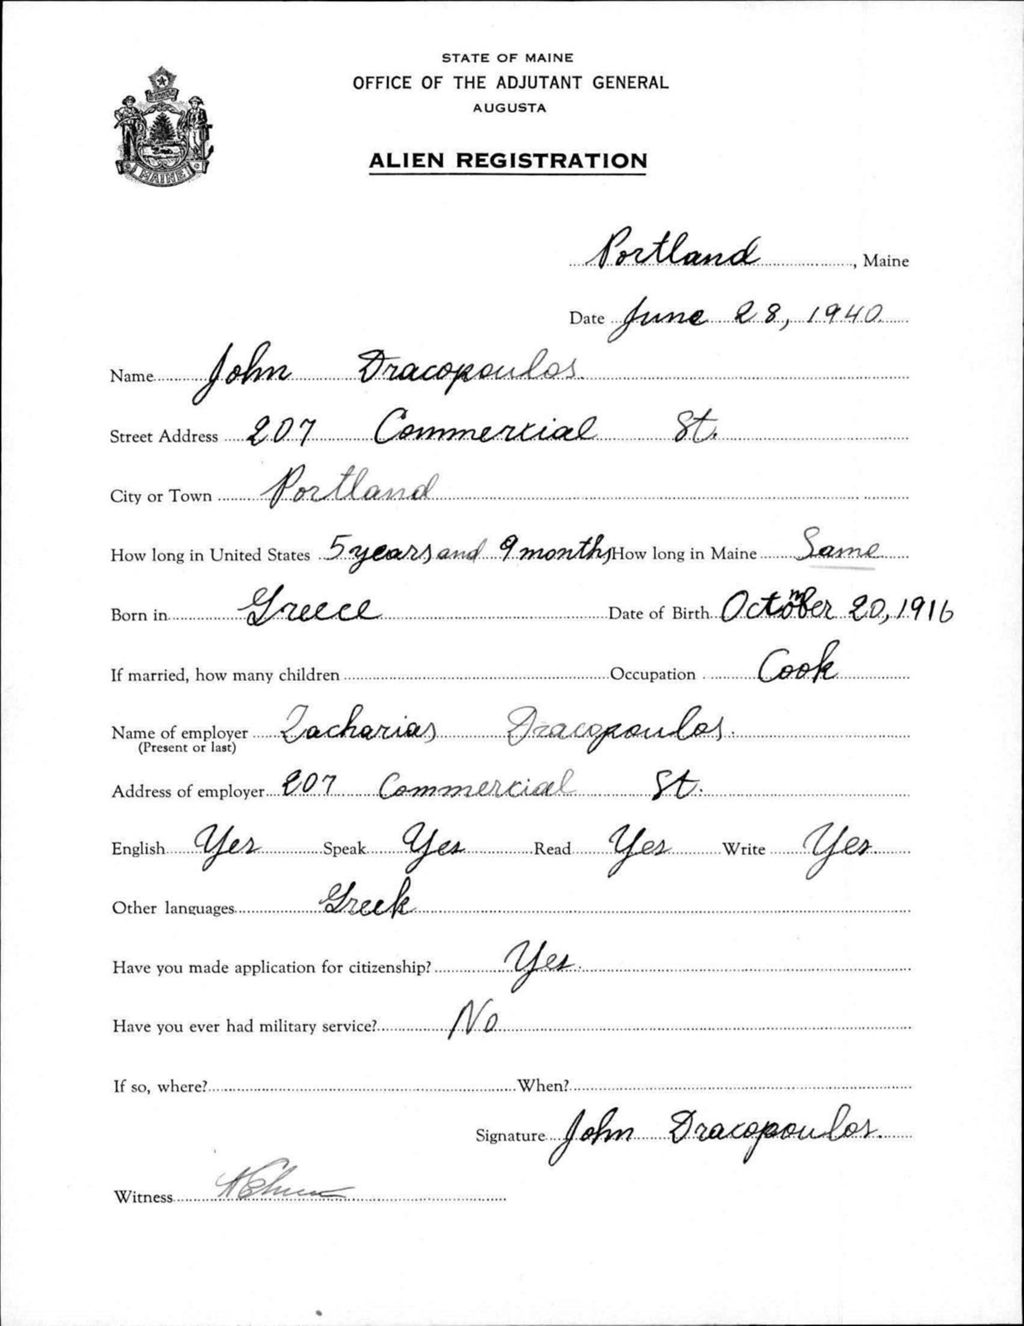 STATE OF MAINE
OFFICE OF THE ADJUTANT GENERAL
AUGUSTA
ALIEN REGISTRATION
MAINE
Portland, Maine
Date June 28, 1940
Name John Dracopoulos
Street Address 207 Commercial St.
City or Town Portland
How long in United States 5 years and 9 months How long in Maine Same
Born in Greece Date of Birth October 20, 1916
If married, how many children Occupation Cook
Name of employer Zacharias Dracopoulos.
(Present or last)
Address of employer 207 Commercial St.
English Yes Speak Yes Read Yes Write Yes
Other languages Greek
Have you made application for citizenship? Yes.
Have you ever had military service? No
If so, where? When?
Signature John Dracopoulos.
Witness